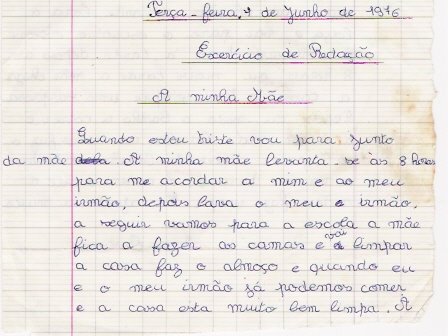 Terça-feira, 1 de Junho de 1976
Exercício de Redação
A minha Mãe
Quando estou triste vou para junto
da mãe. A minha mãe levanta-se às 8 horas
para me acordar a mim e ao meu
irmão, depois lava o meu irmão,
a seguir vamos para a escola a mãe
fica a fazer as camas e vai limpar
a casa faz o almoço e quando eu
e o meu irmão já podemos comer
e a casa esta muito bem limpa. A